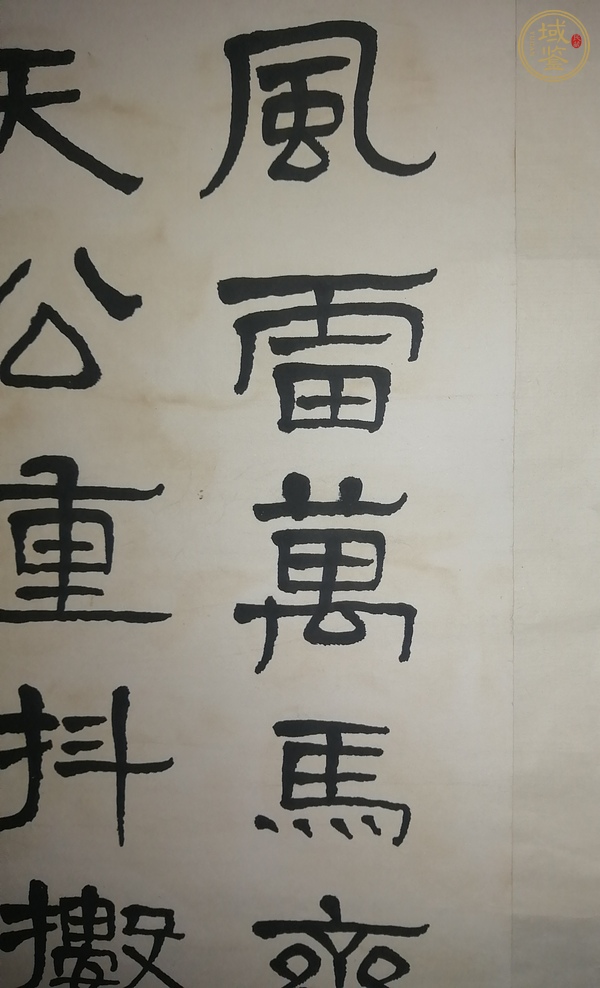 風雷萬馬齊
天公重抖擻
域鑒